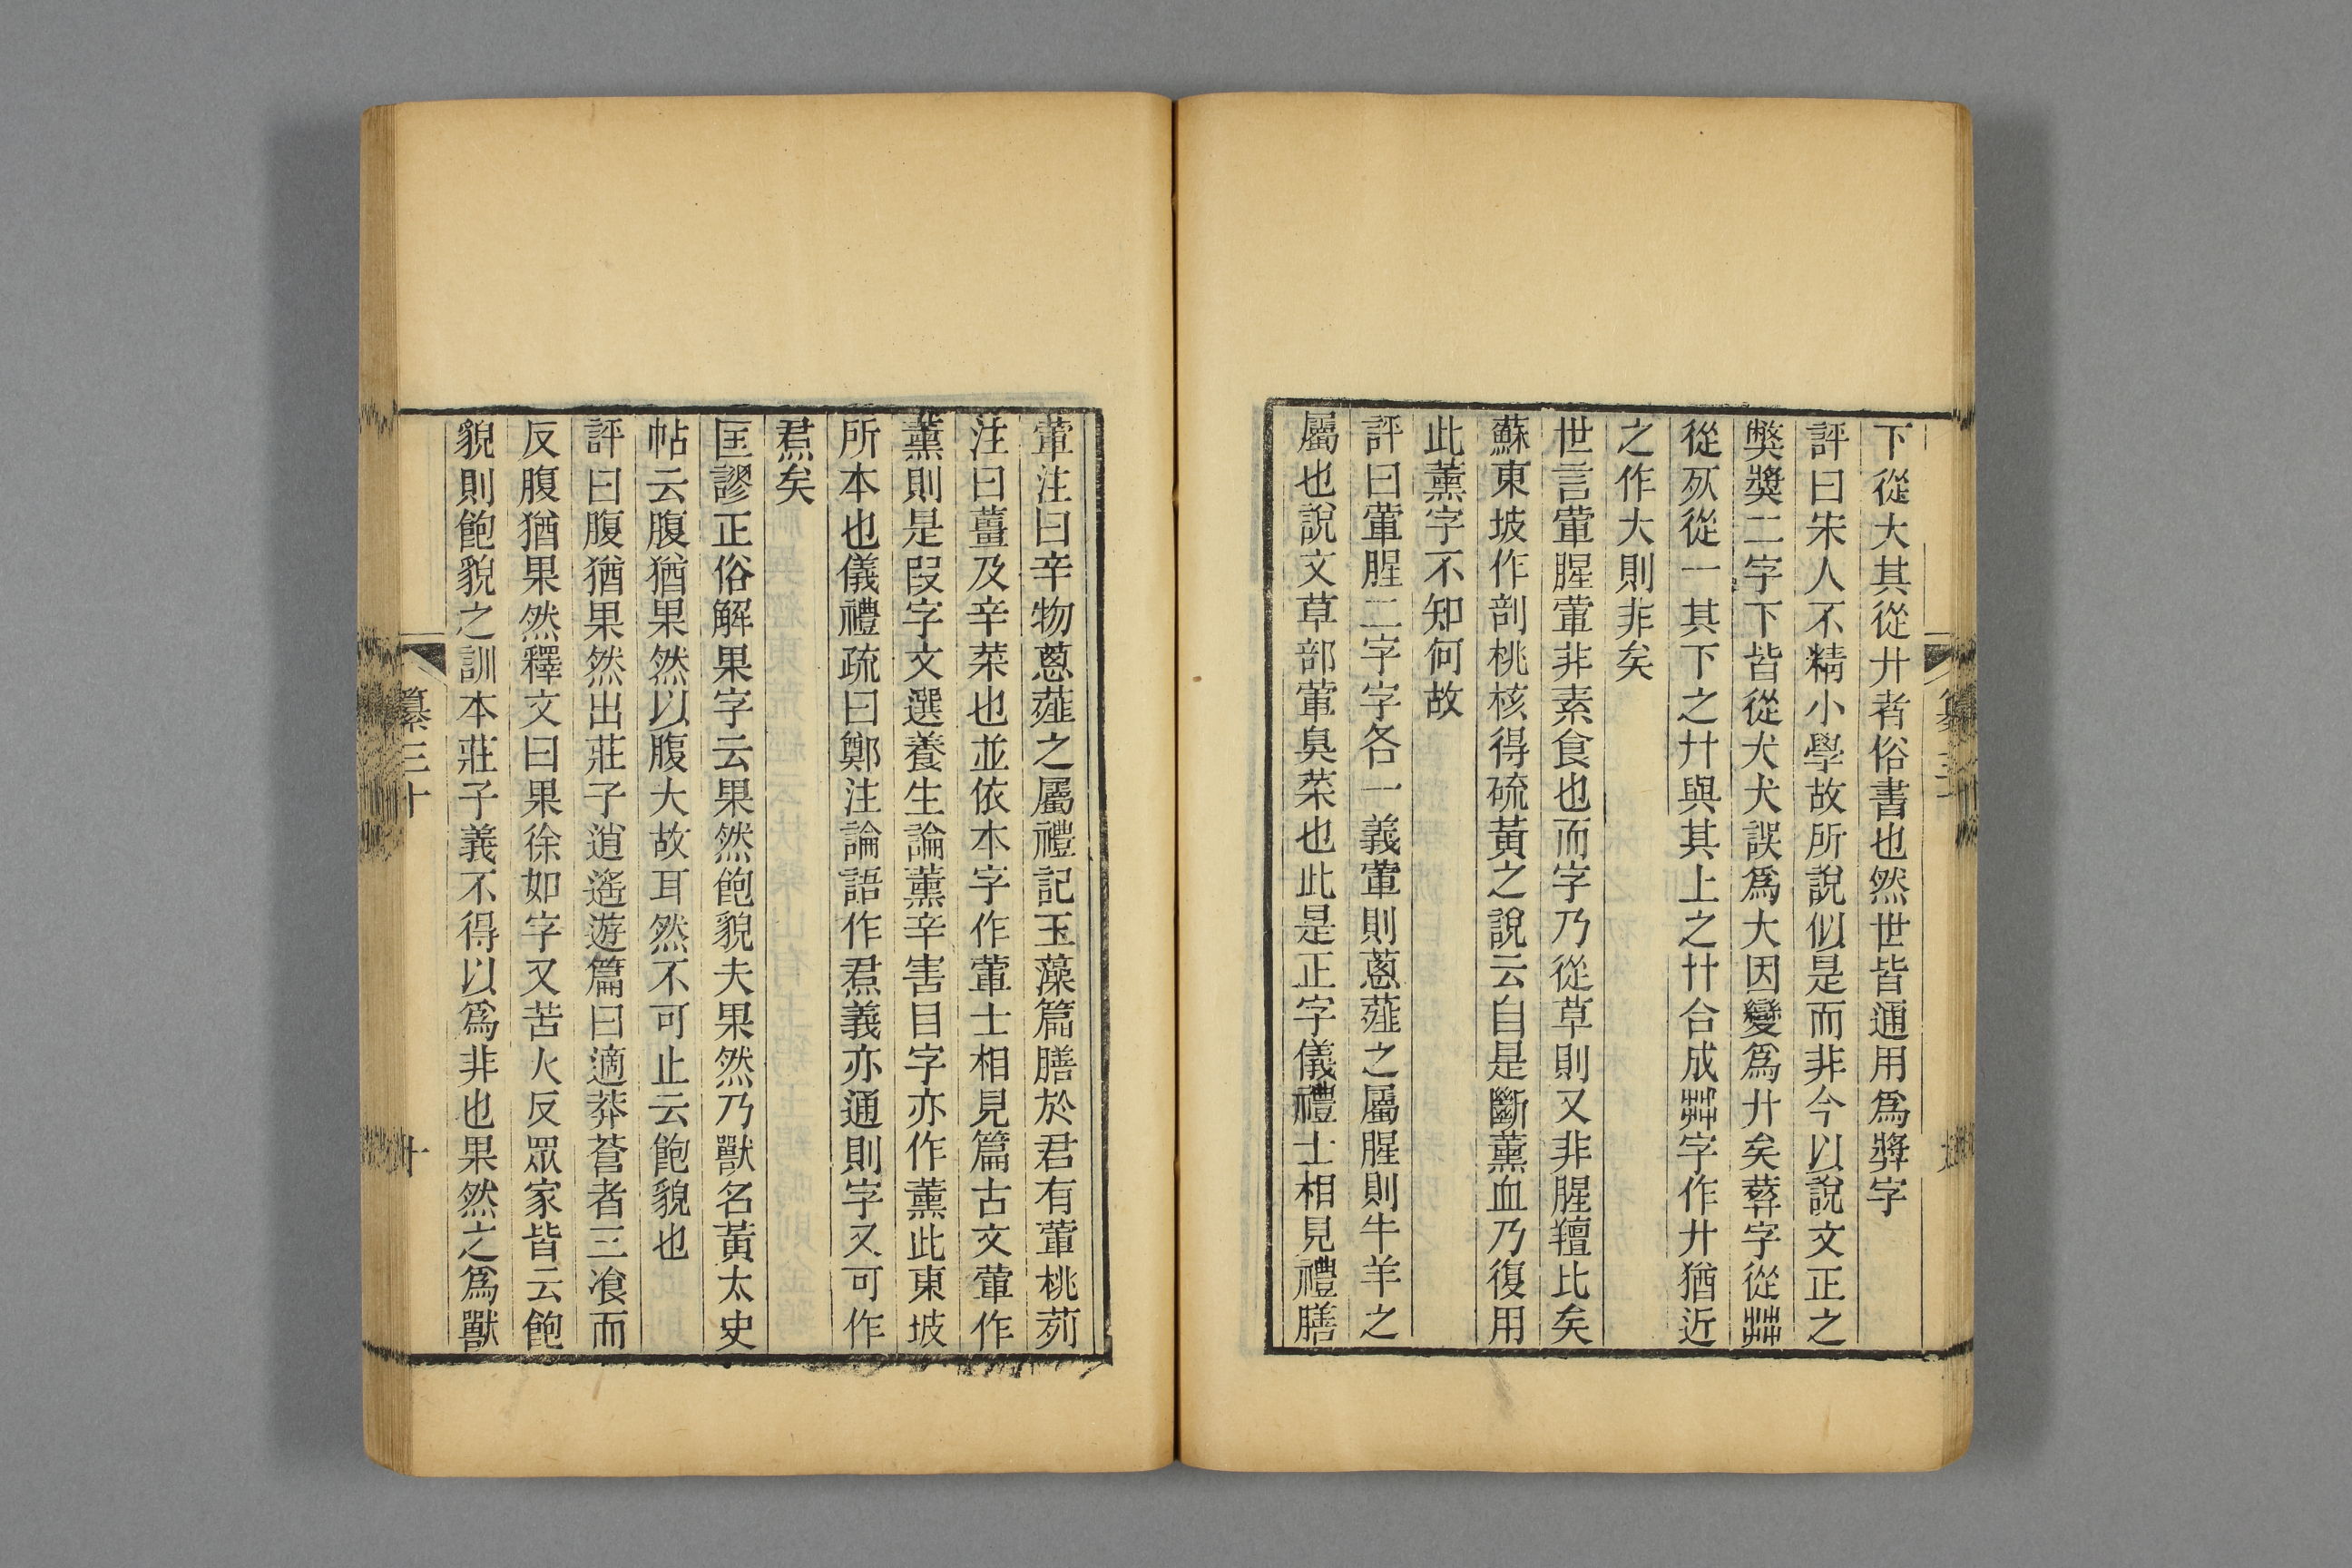 下從大其從廾者俗書也然世皆通用爲弊字
評曰宋人不精小學故所說似是而非今以說文正之
獘奬二字下皆從犬犬誤爲大因變爲廾矣葬字從茻
從㱙從一其下之廾與其上之艹合成茻字作廾猶近
之作大則非矣
世言葷腥葷非素食也而字乃從草則又非腥羶比矣
蘇東坡作剖桃核得硫黃之說云自是斷薰血乃復用
此薰字不知何故
評曰葷腥二字字各一義葷則蔥薤之屬腥則牛羊之
屬也說文草部葷臭菜也此是正字儀禮士相見禮膳
葷注曰辛物蔥薤之屬禮記玉藻篇膳於君有葷桃茢
注曰薑及辛菜也並依本字作葷士相見篇古文葷作
薰則是叚字文選養生論薰辛害目字亦作薰此東坡
所本也儀禮疏曰鄭注論語作焄義亦通則字又可作
焄矣
匡謬正俗解果字云果然飽貌夫果然乃獸名黃太史
帖云腹猶果然以腹大故耳然不可止云飽貌也
評曰腹猶果然出莊子逍遙遊篇曰適莽蒼者三飡而
反腹猶果然釋文曰果徐如字又苦火反眾家皆云飽
貌則飽貌之訓本莊子義不得以爲非也果然之爲獸
纂三十
十